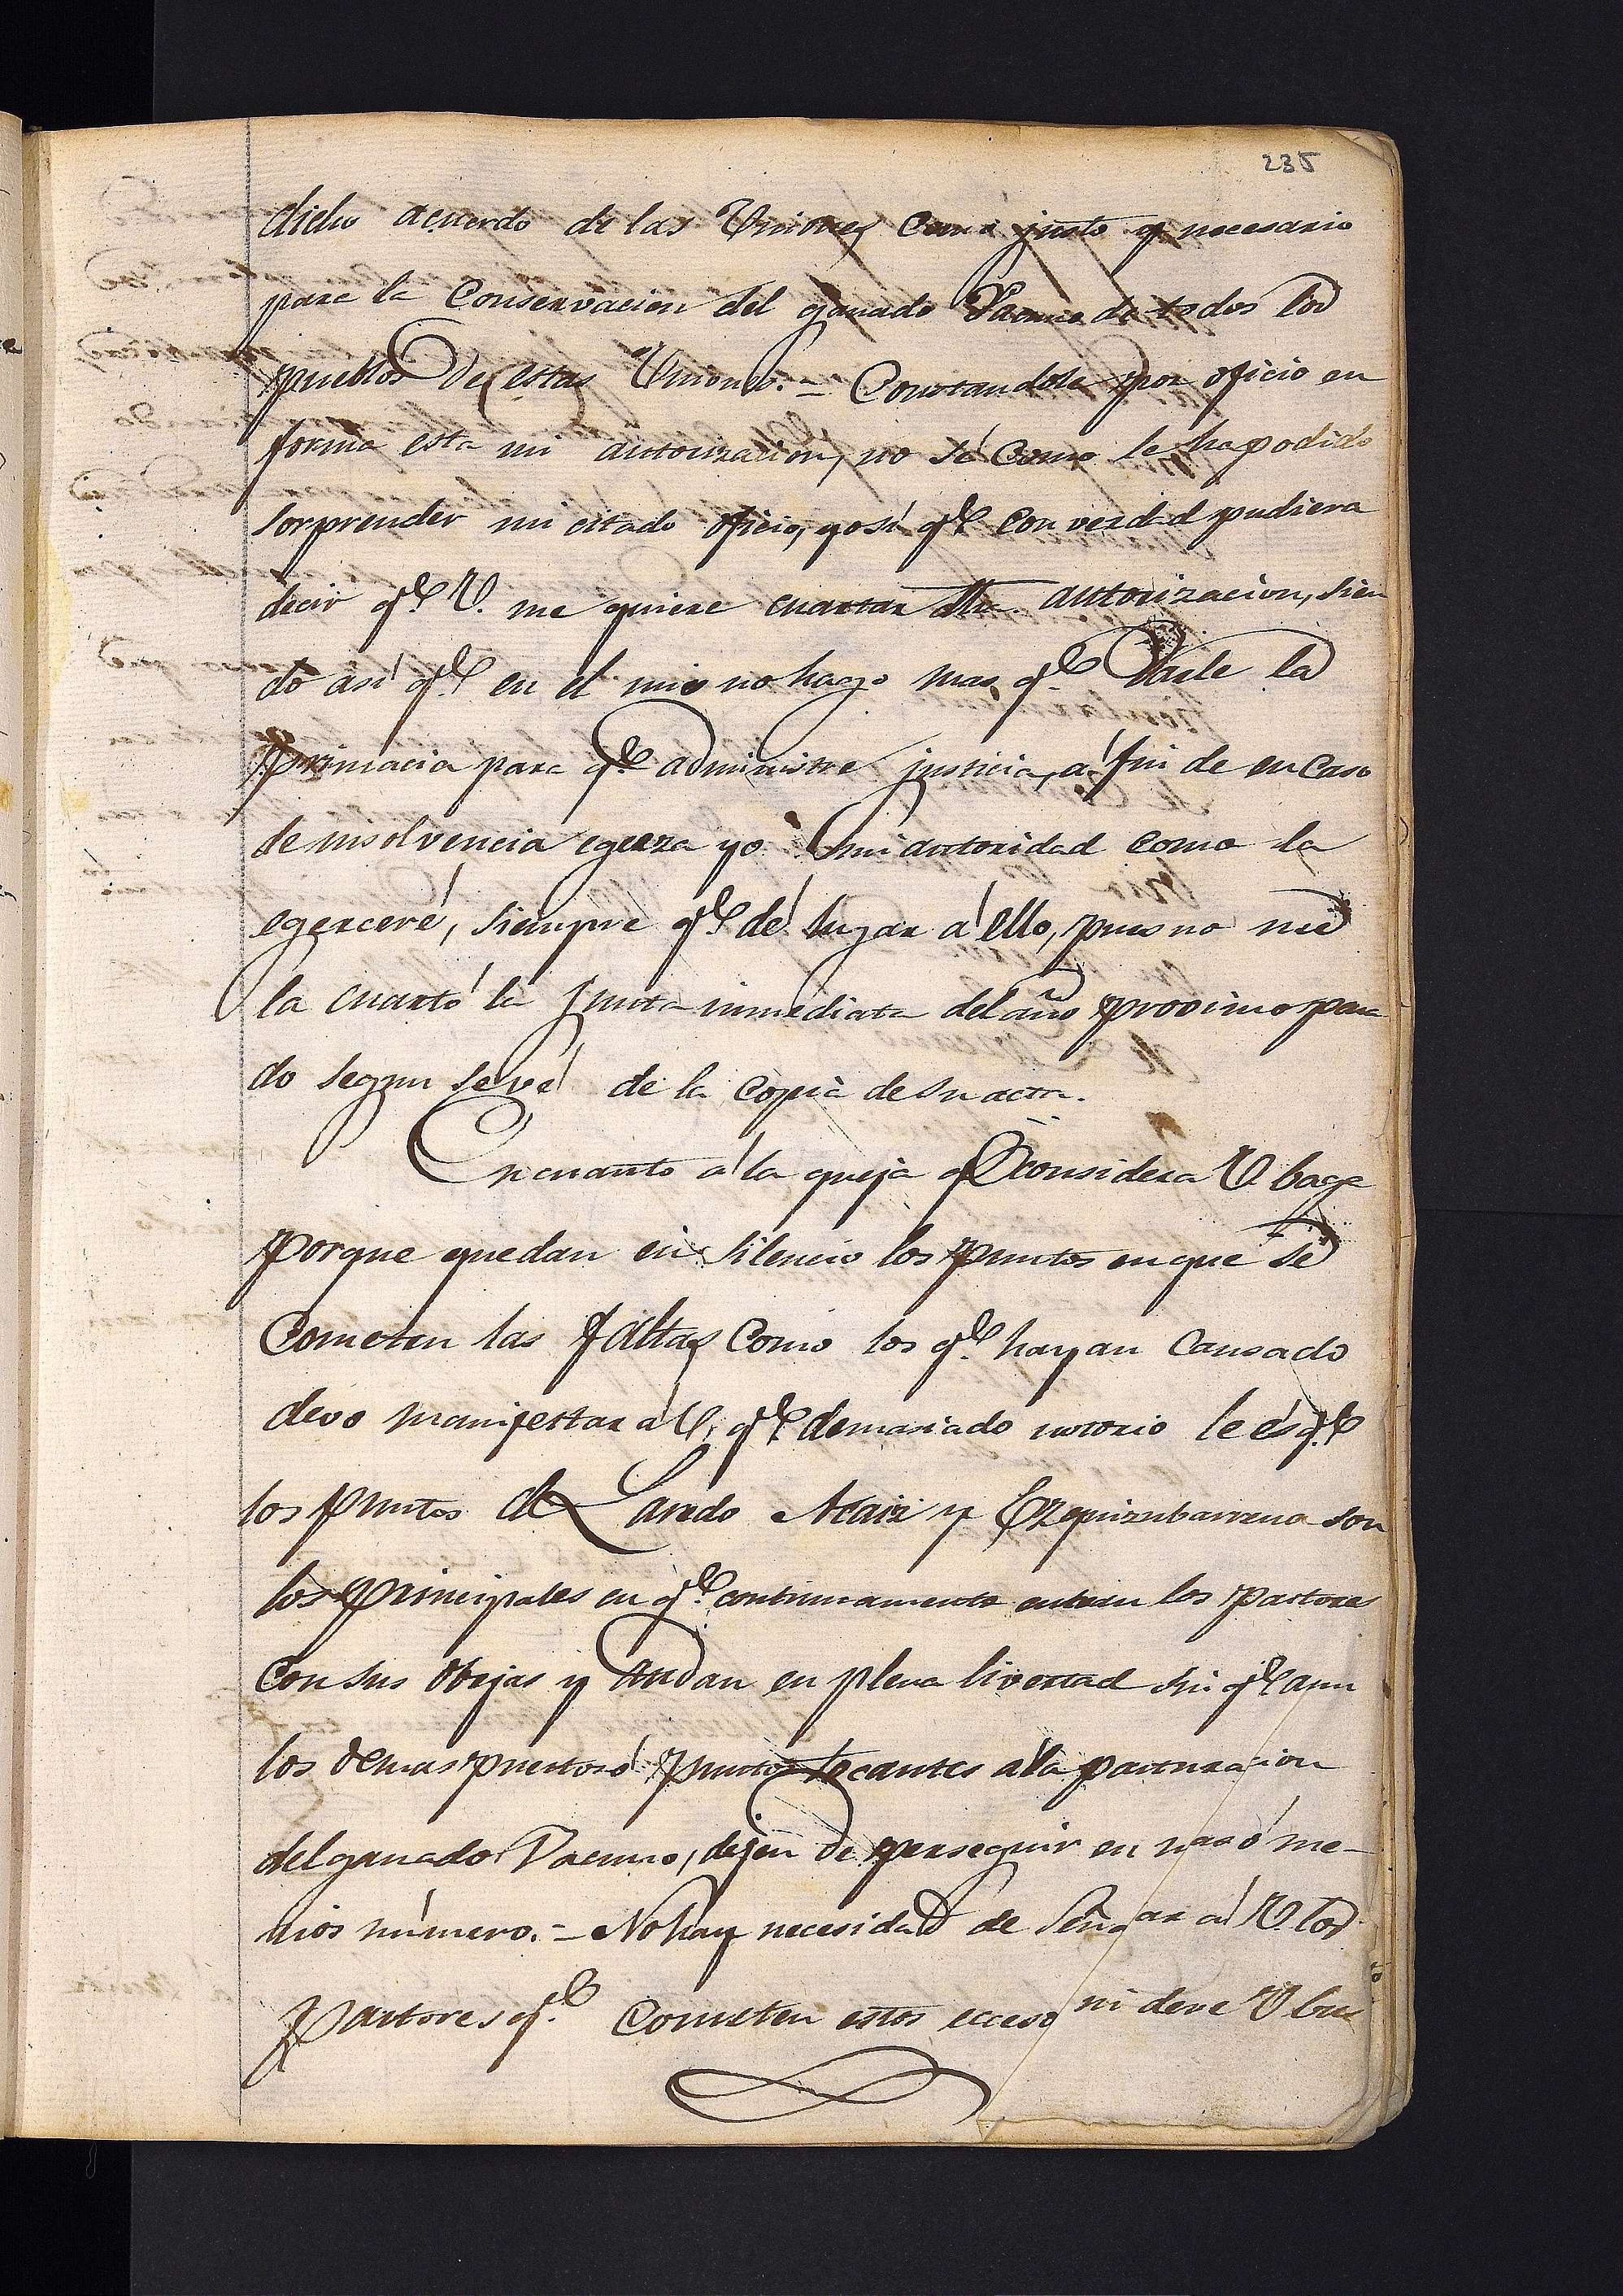 235
dicho acuerdo de las Uniones como justo y necesario
para la Conservacion del ganado Vacuno de todos los
pueblos de estas Uniones. = Constandole por oficio en
forma esta mi autorizacion, no sé como le ha podido
sorprender mi citado oficio, yo sí q.e con verdad pudiera
decir q.e V. me quiere cuartar dha. autorizacion, sien
do así q.e en el mio no hago mas q.e darle la
primacia para q.e administre justicia, á fin de en caso
de insolvencia egerza yo mi autoridad como la
egerceré, siempre q.e dé lugar á ello, pues no me
la cuartó la Junta inmediata del año procimo pasa
do segun se vé de la copia de su acta.
En cuanto á la queja q.e considera V. baga
porque quedan en silencio los puntos en que se
Cometen las faltas como los q.e hayan causado
devo manifestar á V. q.e demasiado notorio le és q.e
los puntos de Laredo Ataiz y Ezquizubarrena son
los principales en q.e continuamente entran los pastores
con sus obejas y andan en plena livertad sin q.e aun
los demas puestos ó puntos tocantes á la pasturacion
del ganado Vacuno, dejen de perseguir en mas ó me-
nos número. = No hay necesidad de señar á V. los
pastores q.e cometen estos exceso ni deve V. bus